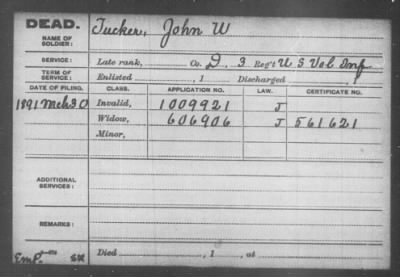 DEAD. Tucker, John W
NAME OF SOLDIER:
SERVICE: Late rank, Co. D, 3 Reg't U S Vol Inf
TERM OF SERVICE: Enlisted , 1 Discharged , 1
DATE OF FILING. CLASS. APPLICATION NO. LAW. CERTIFICATE NO.
1891 Mch 30 Invalid, 1009921 J
Widow, 606906 J 561621
Minor,
ADDITIONAL SERVICES:
REMARKS:
Died , 1 , at